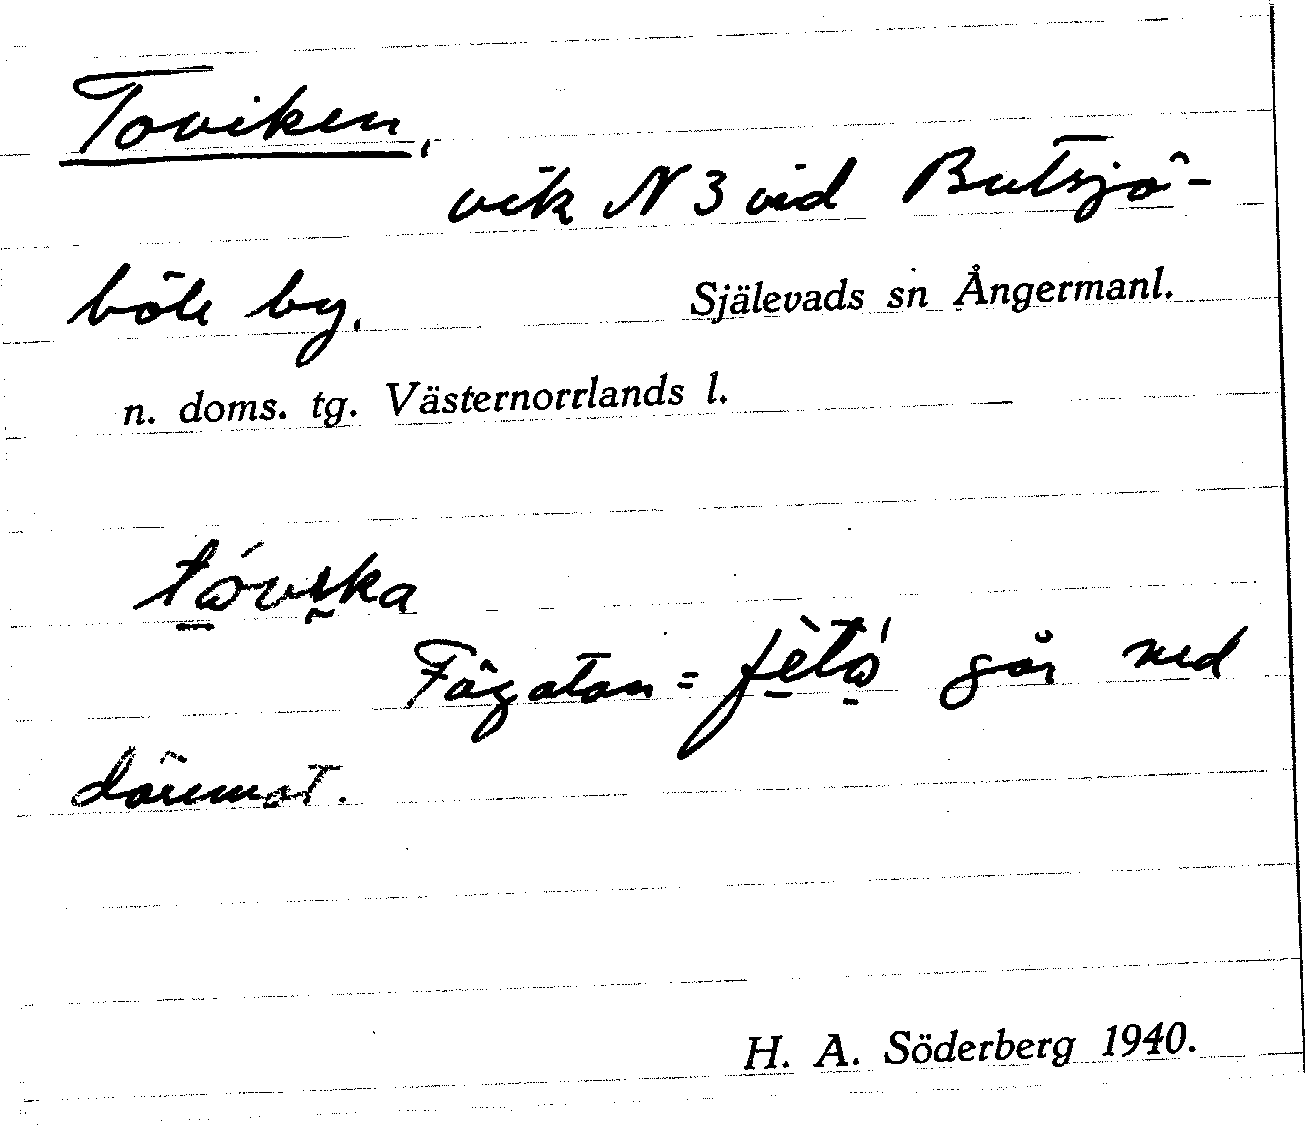 Toviken,
vik N 3 vid Butsjö-
böle by.
Själevads sn Ångermanl.
n. doms. tg. Västernorrlands l.
tóvika
Fägatan = går ned
däremot.
H. A. Söderberg 1940.